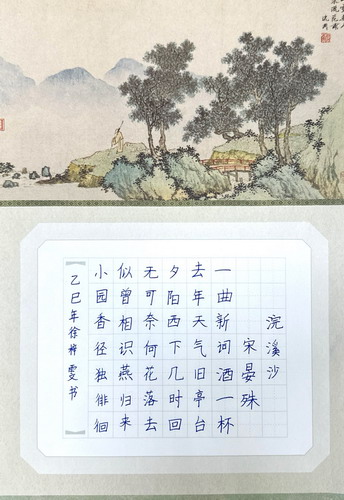 浣溪沙
宋晏殊
一曲新词酒一杯
去年天气旧亭台
夕阳西下几时回
无可奈何花落去
似曾相识燕归来
小园香径独徘徊
乙巳年徐梓雯书